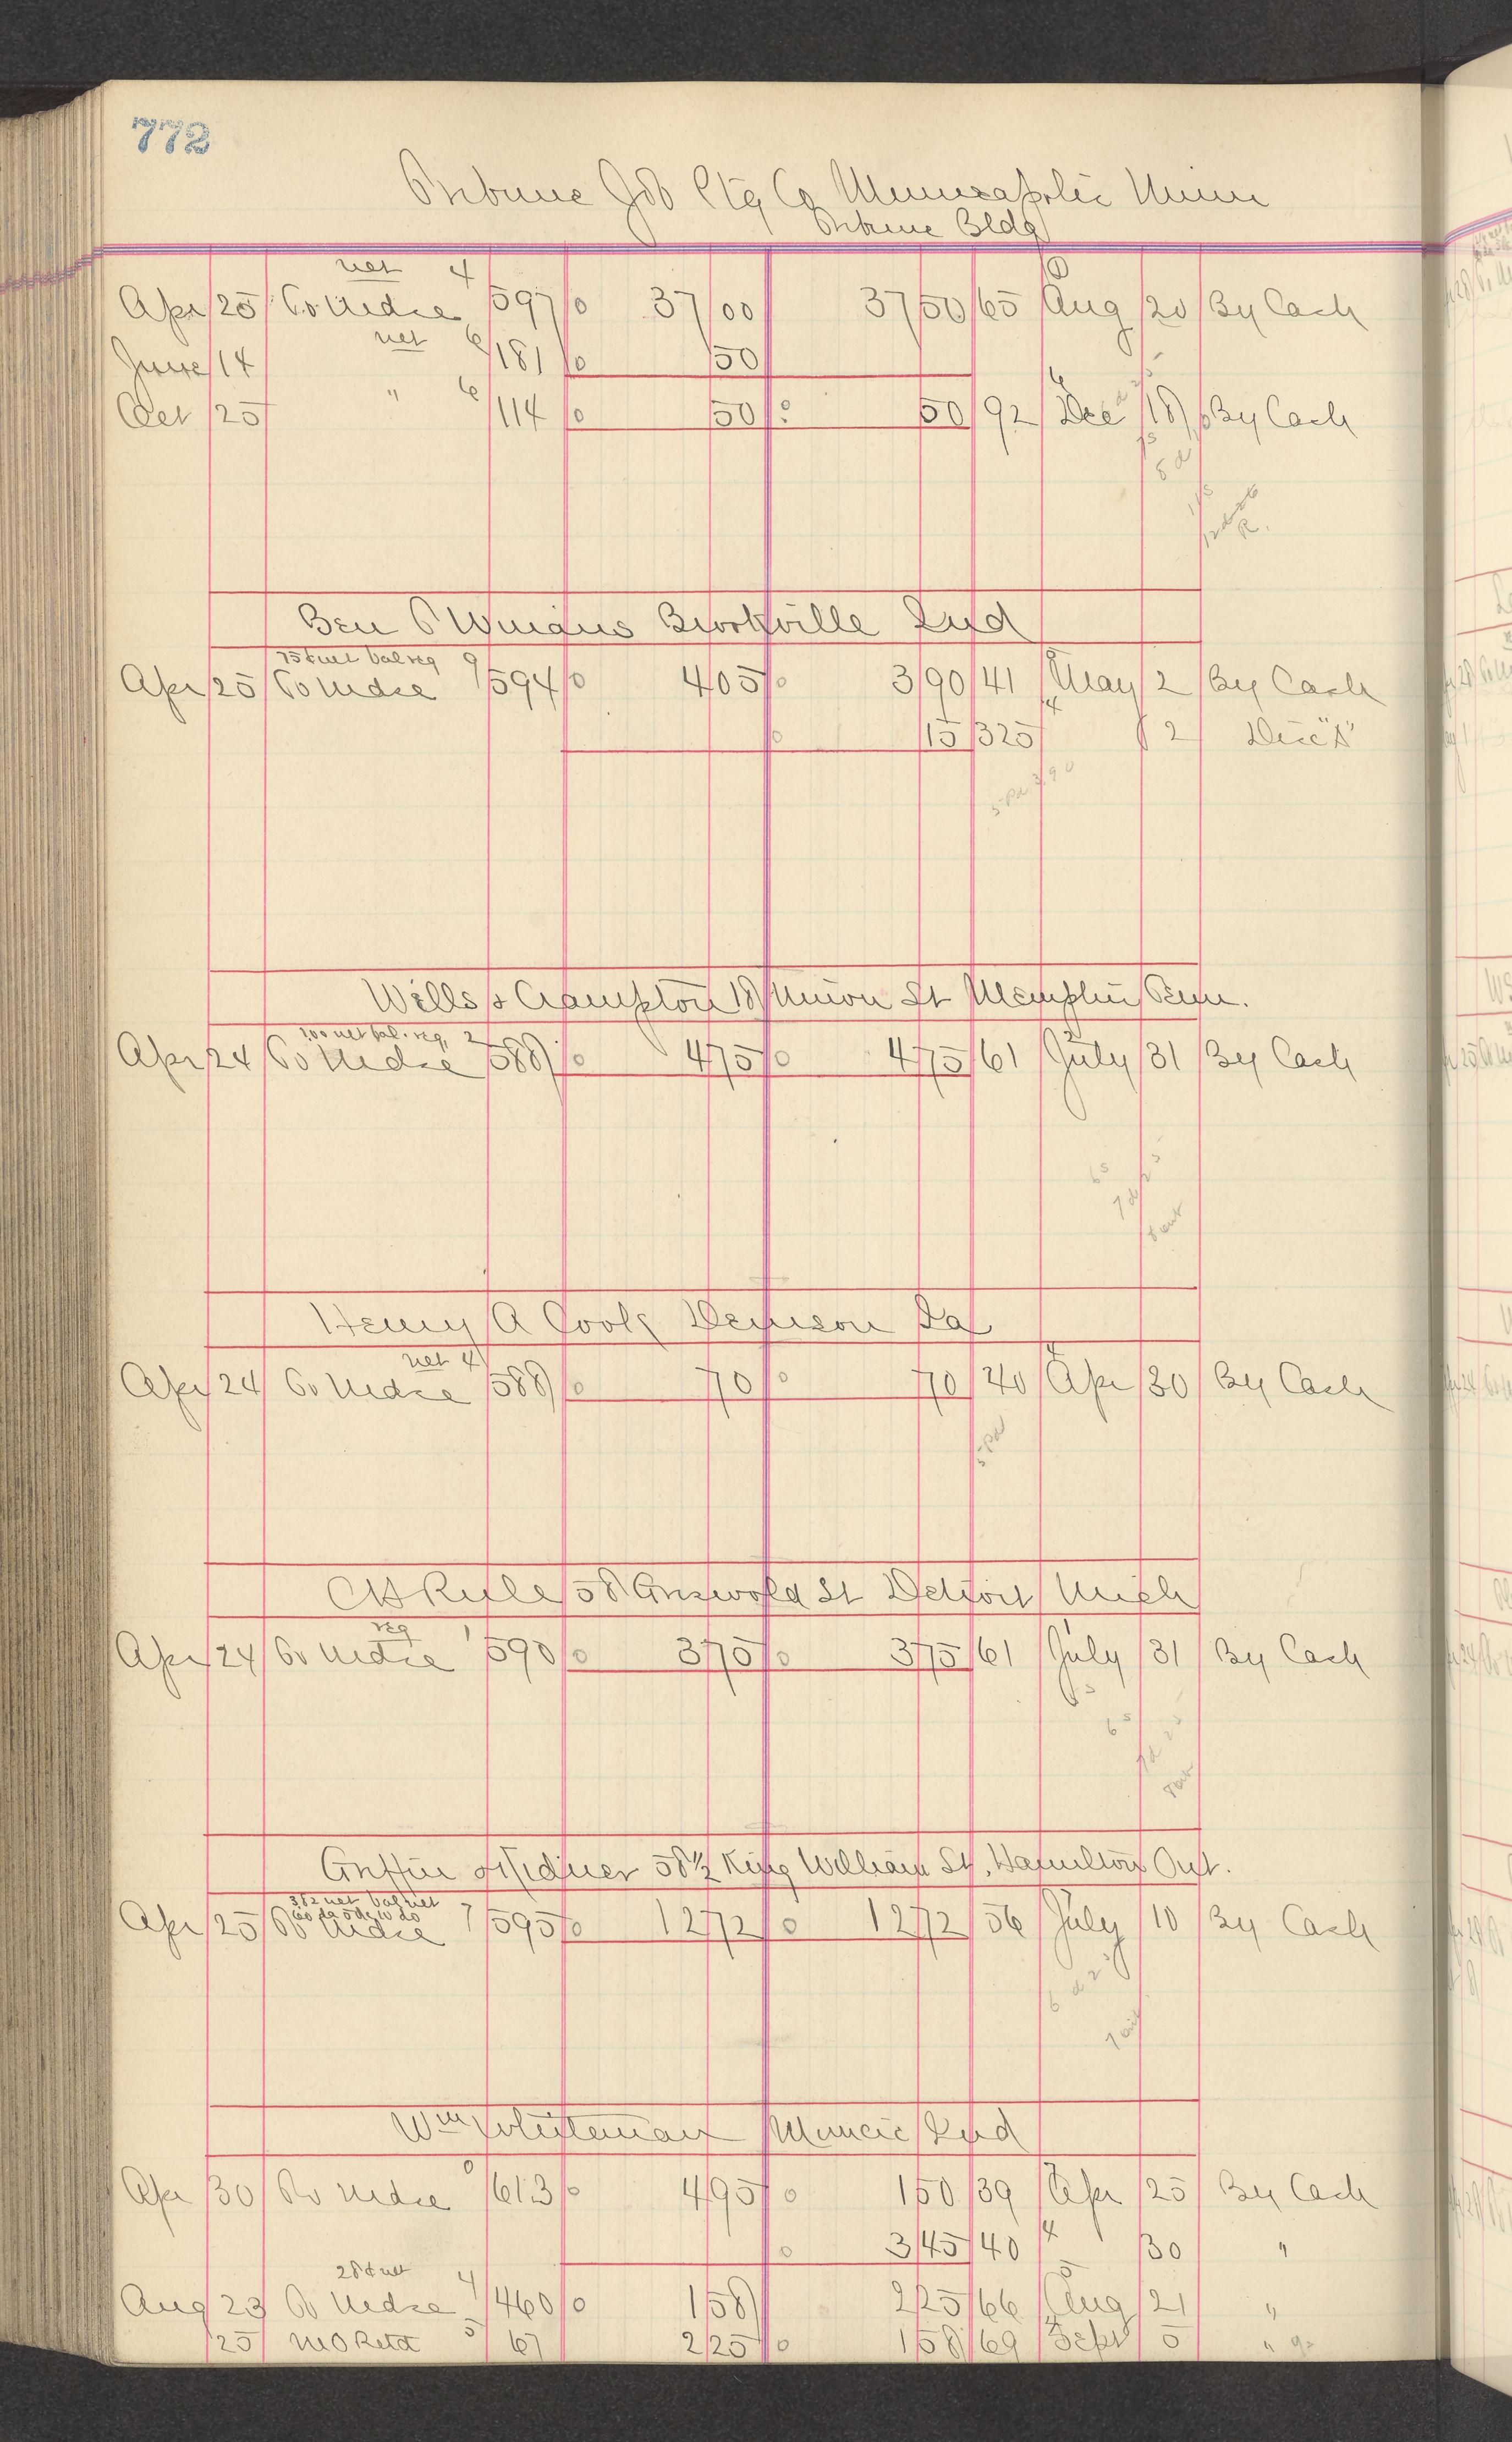 772
Tribune Job Ptg Co Minneapolis Minn
Tribune Bldg
net 4
Apr 25 To Mdse 597 0 37 00 37 50 65 Aug 20 By Cash
net 6
June 14 181 0 50
" 6
Oct 25 114 0 50 0 50 92 Dec 18 By Cash
Ben Winans Brookville Ind
75¢ net bal reg 9
Apr 25 To Mdse 594 0 4 05 0 3 90 41 May 2 By Cash
0 15 325 2 Disc "A"
5 Pd 3 90
Wills & Crampton 18 Union St Memphis Tenn.
1.00 net bal. reg. 2
Apr 24 To Mdse 588 0 4 75 0 4 75 61 July 31 By Cash
Henry A Cook Denison Ia
net 4
Apr 24 To Mdse 588 0 70 0 70 40 Apr 30 By Cash
5 Pd
CH Rule 58 Griswold St Detroit Mich
reg 1
Apr 24 To Mdse 590 0 3 75 0 3 75 61 July 31 By Cash
Griffin & Kidner 58½ King William St. Hamilton Ont.
382 net bal net
60 da 5 de 10 do 7
Apr 25 To Mdse 595 0 12 72 0 12 72 56 July 10 By Cash
Wm Whiteman Muncie Ind
Apr 30 To Mdse 613 0 4 95 0 1 50 39 Apr 25 By Cash
0 3 45 40 30 "
28¢ net 4
Aug 23 To Mdse 460 0 1 58 2 25 66 Aug 21 "
25 MO Retd 5 67 2 25 0 1 58 69 Sept 5 "